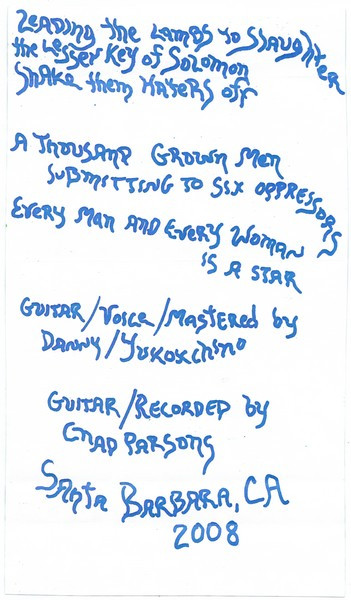 Leading the Lambs to Slaughter
the Lesser Key of Solomon
Shake them Haters off
A Thousand Grown Men
Submitting to six oppressors
Every Man and Every Woman
is a star
Guitar/Voice/Mastered by
Danny/Yukoxchino
Guitar/Recorded by
Chad Parsons
Santa Barbara, CA
2008